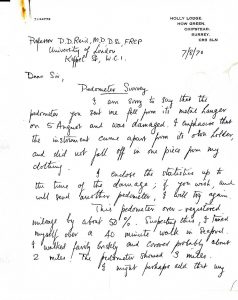 HOLLY LODGE,
HOW GREEN,
CHIPSTEAD,
SURREY.
7/8/70
Professor D.D. Reid, M.D. D.Sc, FRCP
University of London
Keppel St, W.C.1.
Dear Sir,
Pedometer Survey.
I am sorry to say that the
pedometer you sent me fell from its metal hanger
on 5 August and was damaged. I emphasise that
the instrument came apart from its own holder,
and did not fall off in one piece from my
clothing.
I enclose the statistics up to
the time of the damage; if you wish, and
will send another pedometer, I will try again.
This pedometer over-registered
mileage by about 50%. Suspecting this, I timed
myself over a 40 minute walk in Seaford.
I walked fairly briskly and covered probably about
2 miles. The pedometer showed 3 miles.
I might perhaps add that my